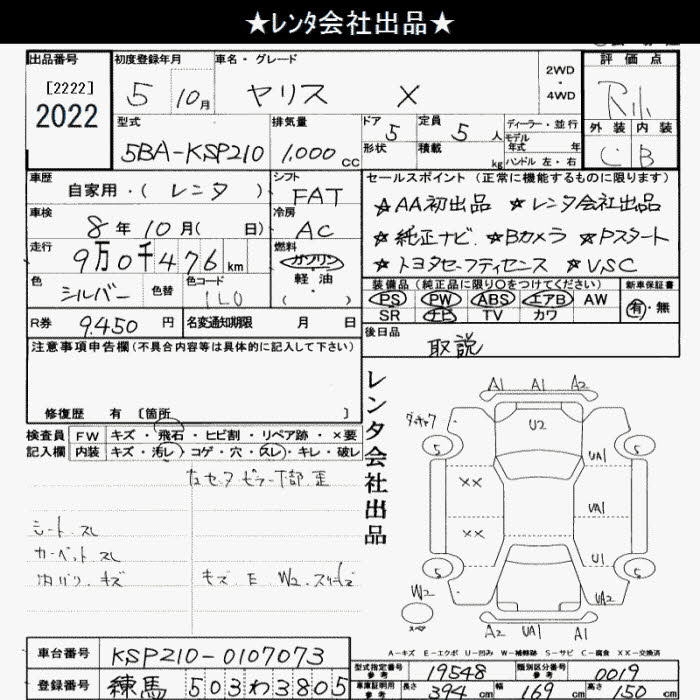 ★レンタ会社出品★
出品番号 初度登録年月 車名・グレード 2WD・4WD 評価点
[2222]
2022
5 10月 ヤリス X
外装 内装
C B
型式 排気量 ドア 定員 ディーラー・並行
5BA-KSP210 1,000cc 5 5人 モデル年式 年
形状 積載 kg ハンドル 左・右
車歴 シフト セールスポイント(正常に機能するものに限ります)
自家用・(レンタ) FAT ☆AA初出品 ☆レンタ会社出品
車検 冷房
8年10月(日) AC ☆純正ナビ ☆Bカメラ ☆Pスタート
走行 燃料
9万0千476km ガソリン ☆トヨタセーフティセンス ☆VSC
軽・油
( )
色 色替 色コード 装備品(純正品に限り○をつけてください) 新車保証書
シルバー 1L0 PS PW ABS エアB AW 有・無
SR ナビ TV カワ
R券 9,450円 名変通知期限 月 日 後日品
取説
注意事項申告欄(不具合内容等は具体的に記入して下さい)
修復歴 有 [箇所 ]
レンタ会社出品
検査員記入欄 FW キズ・飛石・ヒビ割・リペア跡・×要
内装 キズ・汚レ・コゲ・穴・スレ・キレ・破レ
シート スレ
カーペット スレ
内バリ キズ
A1 A1 A2
U2
5 5
UA1
XX
UA1
XX
U1
5 5
W2 UA2
スペア
A2 UA1 A1
A-キズ E-エクボ U-凹ミ W-補修跡 S-サビ C-腐食 XX-交換済
車台番号 KSP210-0107073
登録番号 練馬 503わ3805
型式指定番号 参考 19548 類別区分番号 参考 0019
車庫証明用 参考 長さ 394cm 幅 169cm 高さ 150cm